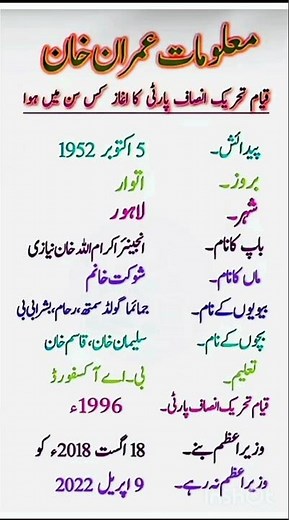 معلومات عمران خان
قیام تحریک انصاف پارٹی کا آغاز کس سن میں ہوا
پیدائش۔ 5 اکتوبر 1952
بروز۔ اتوار
شہر۔ لاہور
باپ کا نام۔ انجینئر اکرام اللہ خان نیازی
ماں کا نام۔ شوکت خانم
بیویوں کے نام۔ جمائما گولڈ سمتھ، رحام، بشرابی بی
بچوں کے نام۔ سلیمان خان، قاسم خان
تعلیم۔ بی۔اے آکسفورڈ
قیام تحریک انصاف پارٹی۔ 1996ء
وزیراعظم بنے۔ 18 اگست 2018ء کو
وزیراعظم نہ رہے۔ 9 اپریل 2022